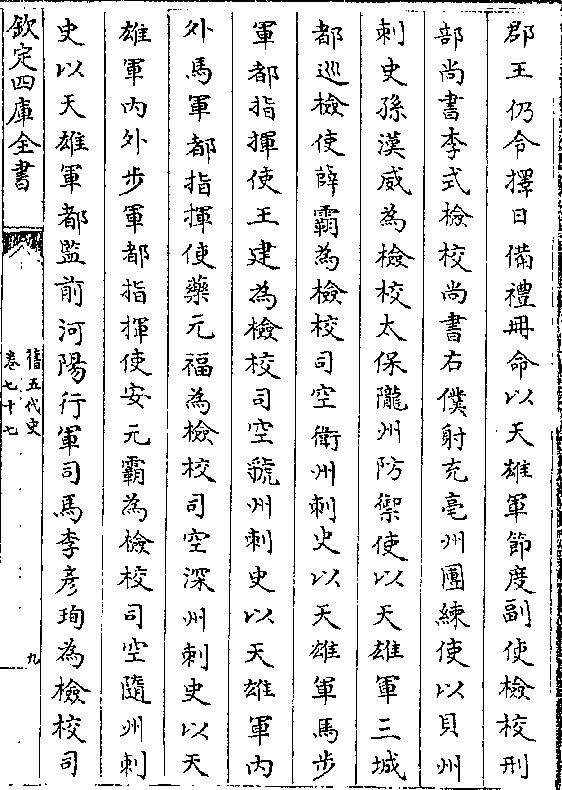 郡王仍令擇日備禮冊命以天雄軍節度副使檢校刑
部尚書李式檢校尚書右僕射充亳州團練使以貝州
刺史孫漢威為檢校太保隴州防禦使以天雄軍三城
都巡檢使薛霸為檢校司空衛州刺史以天雄軍馬步
軍都指揮使王建為檢校司空虢州刺史以天雄軍內
外馬軍都指揮使藥元福為檢校司空深州刺史以天
雄軍內外步軍都指揮使安元霸為檢校司空隨州刺
史以天雄軍都監前河陽行軍司馬李彥珣為檢校司
欽定四庫全書
舊五代史
卷七十七
九